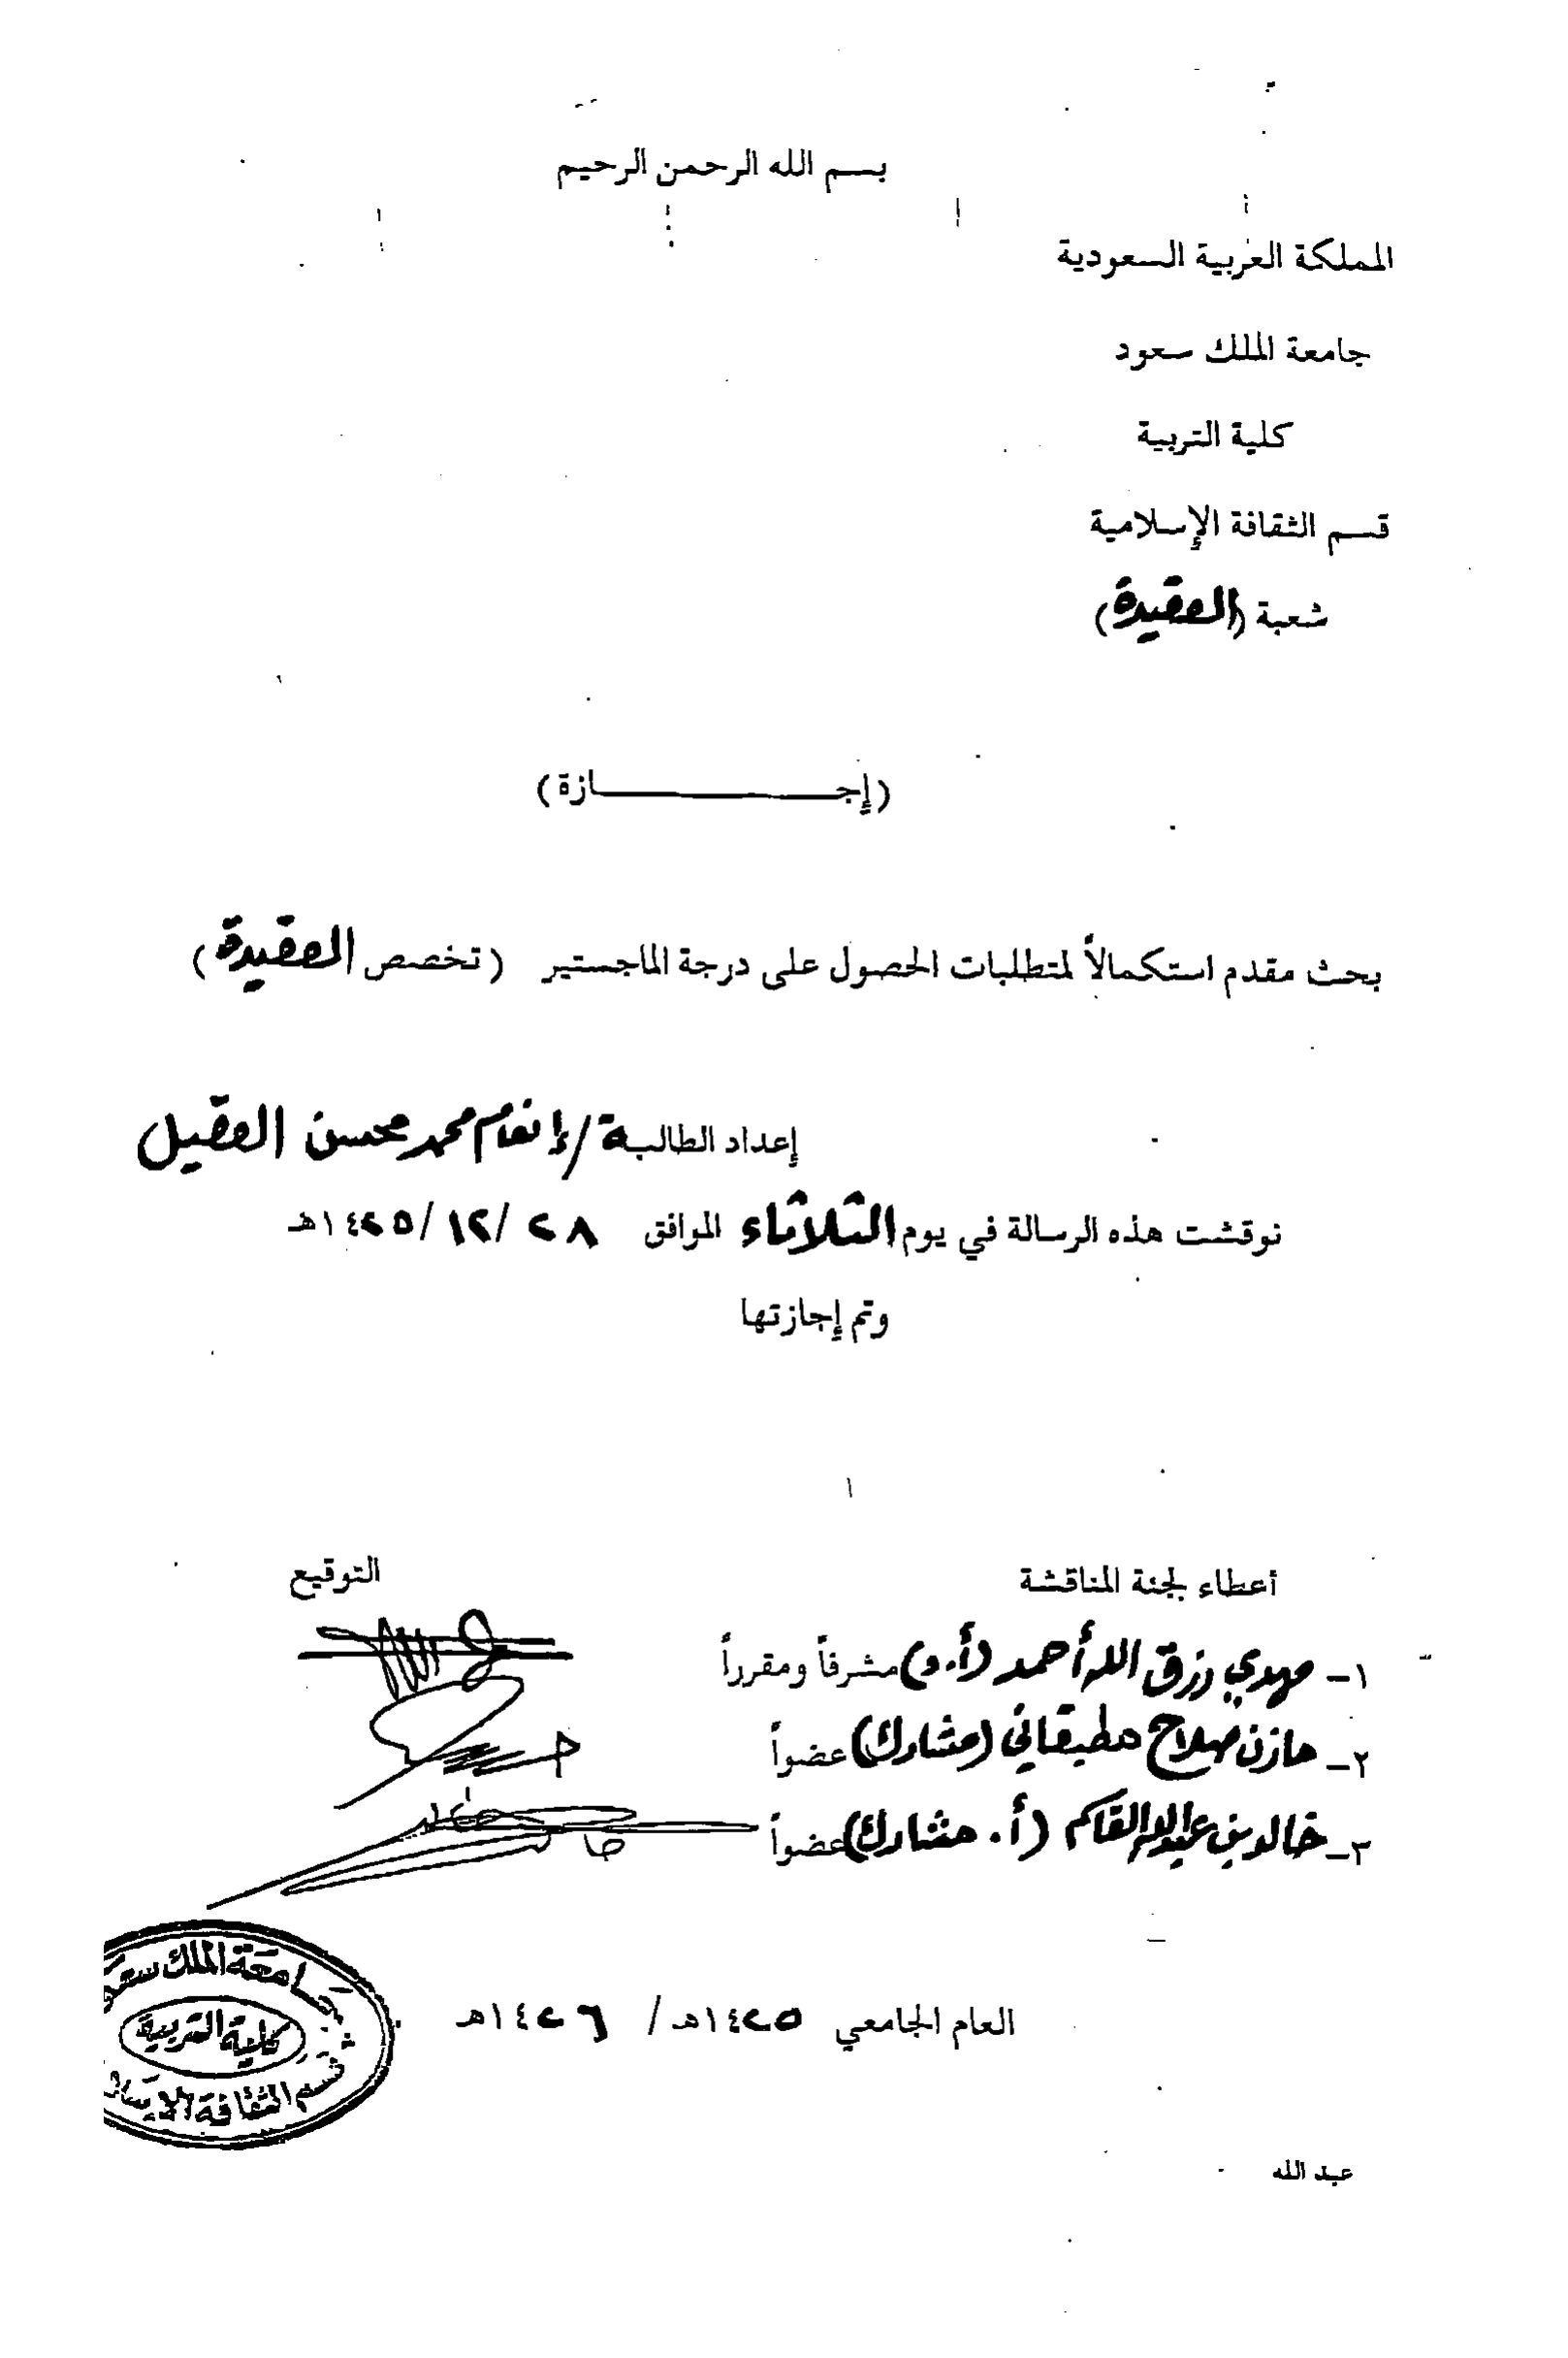 بسم الله الرحمن الرحيم
المملكة العربية السعودية
جامعة الملك سعود
كلية التربية
قسم الثقافة الإسلامية
شعبة (العقيدة)
(إجــــــــــازة)
بحث مقدم استكمالاً لمتطلبات الحصول على درجة الماجستير (تخصص العقيدة)
إعداد الطالبة / إنعام محمد محسن العقيل
نوقشت هذه الرسالة في يوم الثلاثاء الموافق ٢٨ / ١٢ / ١٤٢٥هـ
وتم إجازتها
أعطاء لجنة المناقشة التوقيع
١- مهدي رزق الله أحمد (أ.د) مشرفاً ومقرراً
٢- مازن صلاح مطبقاني (مشارك) عضواً
٣- خالد بن عبدالله القاسم (أ. مشارك) عضواً
جامعة الملك سعو
كلية التربية
قسم الثقافة الإسلا
العام الجامعي ١٤٢٥هـ / ١٤٢٦هـ
عبد الله